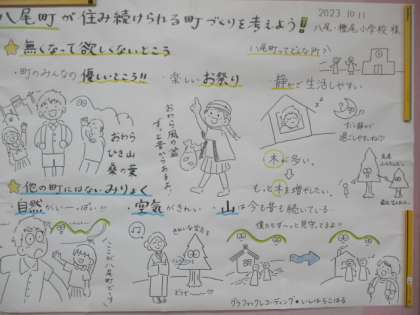 八尾町が住み続けられる町づくりを考えよう!!
2023.10.11
八尾・樫尾小学校 様
☆無くなって欲しくないところ
八尾町ってどんな所?
・町のみんなの優しいところ!!
・楽しいお祭り
静かで生活しやすい
おわら
ひき山
桑の葉
おわら風の盆
木が多い。
もっと木を増やしたい。
☆他の町にはないみりょく
自然がいーっぱい!!
・空気がきれい
・山は今も昔も続いている
グラフィックレコーディング・いしはらこはる